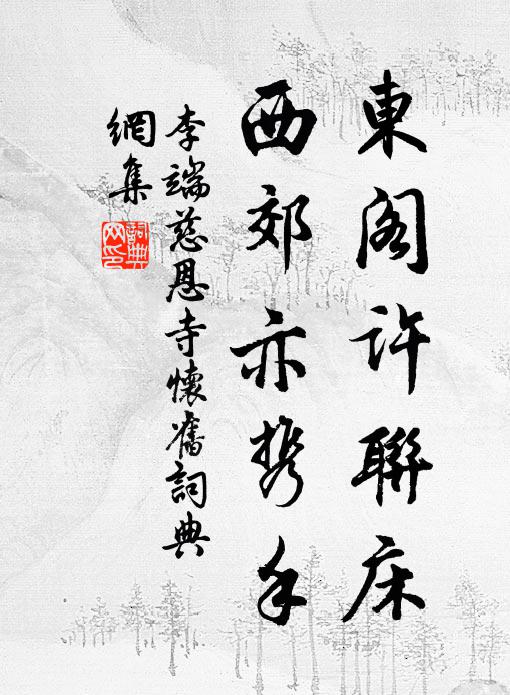 東閣許聯床
西郊亦携手
李端慈恩寺懷舊詞典
網集
詞典
网印